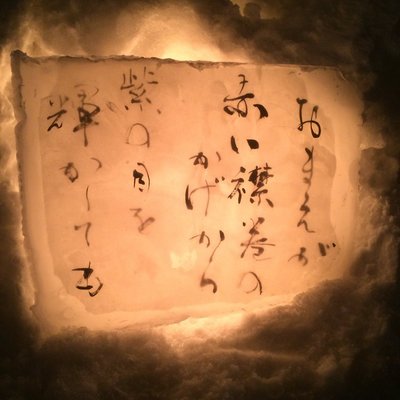 おまえが
赤い襟巻の
かげから
紫の目を
輝かしても